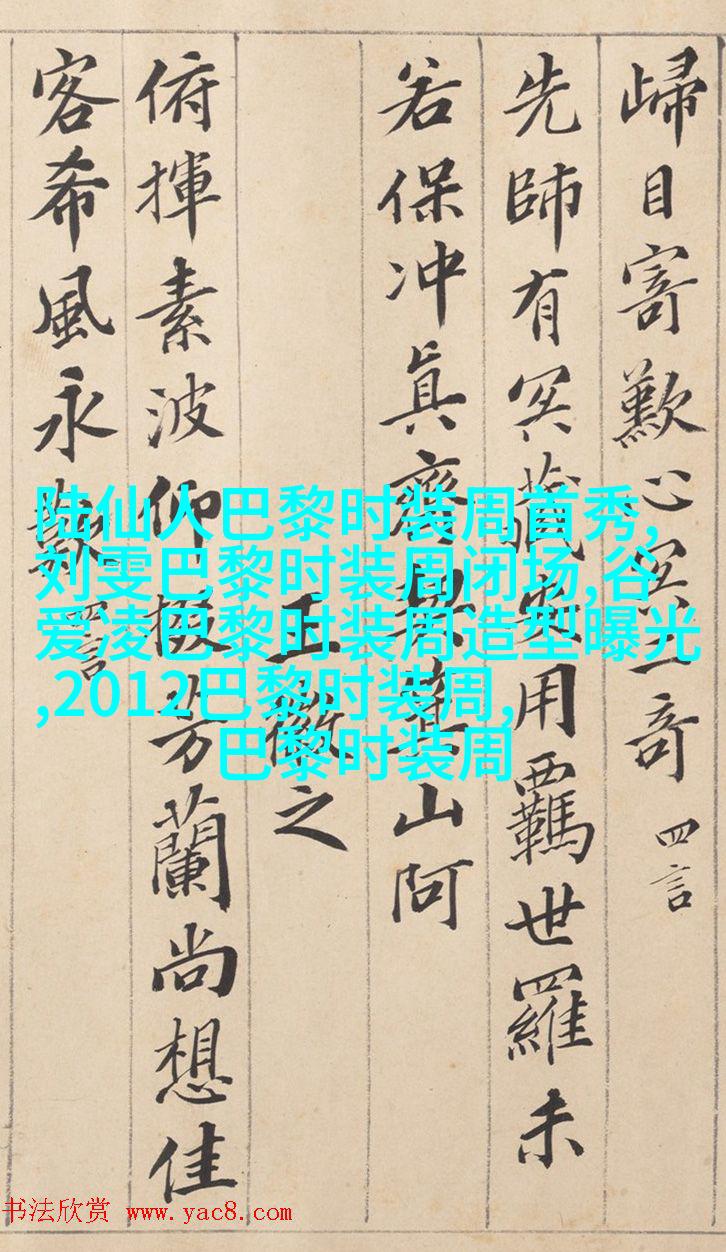 歸目寄歎心冥一奇 四言
先師有冥藏安用羈世羅未
若保冲真齊契箕山阿
王徽之
俯揮素波仰掇芳蘭尚想佳
客希風永歎 四言
陆仙人巴黎时装周首秀,
刘雯巴黎时装周闭场,谷
爱凌巴黎时装周造型曝光
,2012巴黎时装周,
巴黎时装周
书法欣赏 www.yac8.com